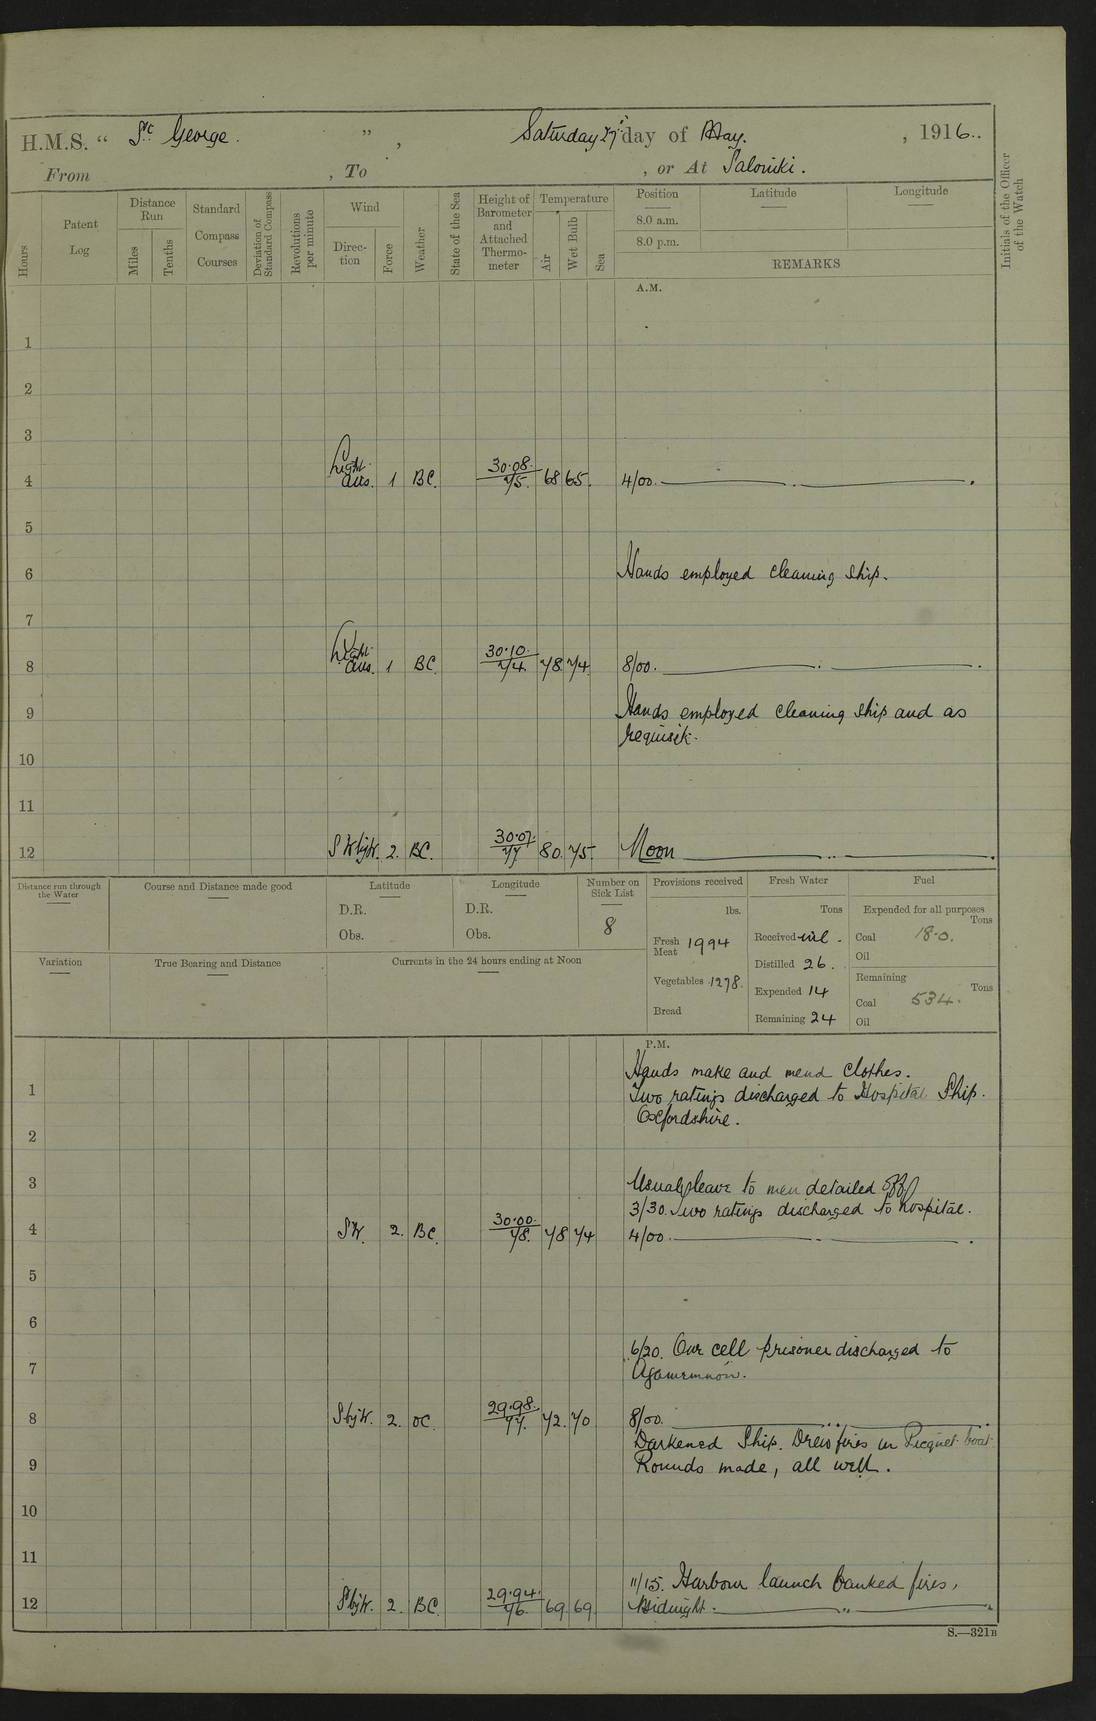 H.M.S. “ St. George. ”, Saturday 27th day of May. , 1916..
From , To , or At Salonika.
Hours
Patent Log
Distance Run
Miles
Tenths
Standard Compass Courses
Deviation of Standard Compass
Revolutions per minute
Wind
Direction
Force
Weather
State of the Sea
Height of Barometer and Attached Thermometer
Temperature
Air
Wet Bulb
Sea
Position
Latitude
Longitude
8.0 a.m.
8.0 p.m.
REMARKS
Initials of the Officer of the Watch
A.M.
1
2
3
4 Light airs. 1 BC. 30.08. 75. 68 65. 4/00.
5
6 Hands employed cleaning ship.
7
8 Light airs. 1 BC. 30.10. 74. 78. 74. 8/00.
9 Hands employed cleaning ship and as
requisite.
10
11
12 SWbyW. 2. BC. 30.07. 77 80. 75. Noon
Distance run through the Water
Course and Distance made good
Latitude
D.R.
Obs.
Longitude
D.R.
Obs.
Number on Sick List
8
Provisions received
lbs.
Fresh Meat 1994
Vegetables 1278.
Bread
Fresh Water
Tons
Received nil.
Distilled 26.
Expended 14
Remaining 24
Fuel
Expended for all purposes
Tons
Coal 18.0.
Oil
Remaining
Tons
Coal 534.
Oil
Variation
True Bearing and Distance
Currents in the 24 hours ending at Noon
P.M.
Hands make and mend clothes.
1 Two ratings discharged to Hospital Ship.
Oxfordshire.
2
3 Usual leave to men detailed off
3/30. Two ratings discharged to hospital.
4 SW. 2. BC. 30.00. 78. 78 74 4/00.
5
6
6/20. Our cell prisoner discharged to
7 Agamemnon.
8 SbyW. 2. OC. 29.98. 77. 72. 70 8/00.
Darkened Ship. Drew fires in Picquet boat.
9 Rounds made, all well.
10
11
11/15. Harbour launch banked fires,
12 SbyW. 2. BC. 29.94. 76. 69. 69. Midnight.
S.—321B